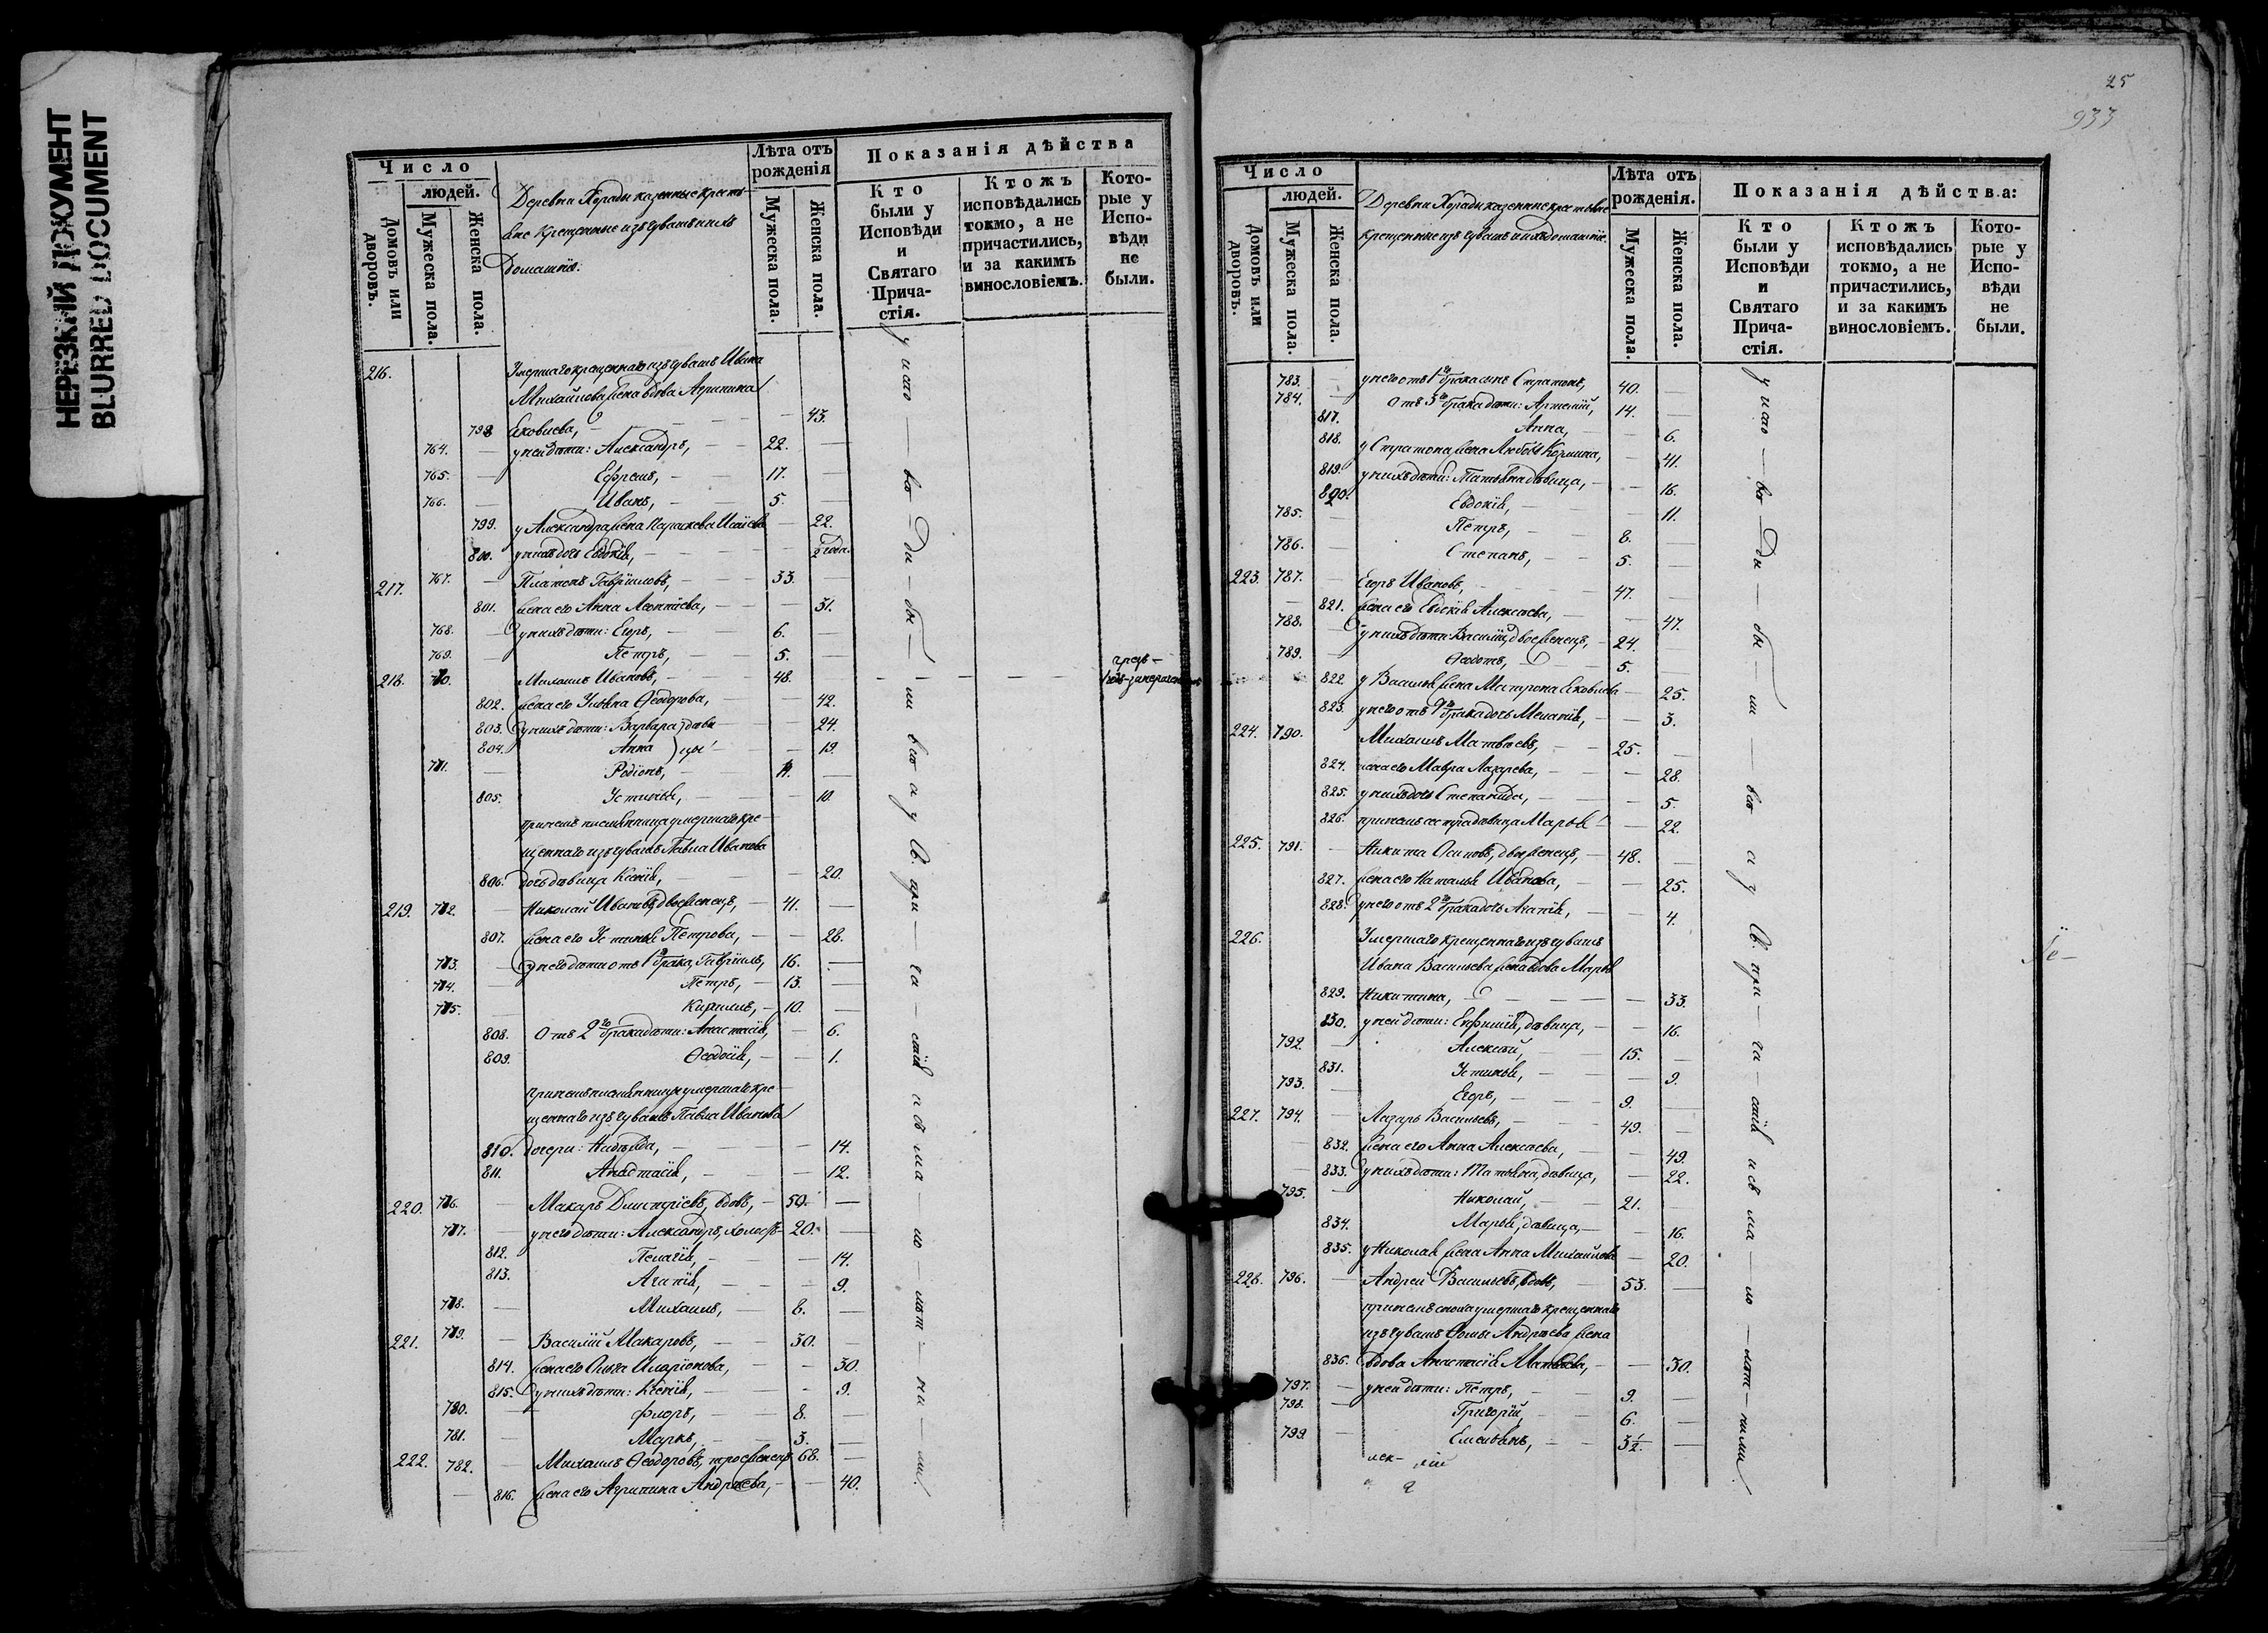 НЕРЕЗКИЙ ДОКУМЕНТ
BLURRED DOCUMENT
Число
людей.
Домовъ или дворовъ.
Мужеска пола.
Женска пола.
Деревни казенные крестья-
не крещенные изъ чувашъ и ихъ
домашніе.
Лѣта отъ рожденія
Мужеска пола.
Женска пола.
Показанія дѣйства
Кто были у Исповѣди и Святаго Прича-стія.
Ктожъ исповѣдались токмо, а не причастились, и за какимъ винословіемъ.
Кото-рые у Испо-вѣди не были.
216. Умершаго крещеннаго изъ чувашъ Ивана
Михайлова жена вдова Агрипина
798 Яковлева, 43.
764. у ней дѣти: Александръ, 22.
765. Ефремъ, 17.
766. Иванъ, 5.
799. у Александра жена Параскева 22.
800. у нихъ дочь Евдокія, года.
217. 767. Платонъ Гавріиловъ, 33.
801. жена его Анна Леонтіева, 31.
768. у нихъ дѣти: Егоръ, 6.
769. Петръ, 5.
218. 770. Михаилъ Ивановъ, 48.
802. жена его Ульяна Ѳеодорова, 42.
803. у нихъ дѣти: Варвара дѣви- 24.
804. Анна цы 19.
771. Родіонъ,
805. Устинья, 10.
при немъ племянница умершаго кре-
щеннаго изъ чувашъ Павла Иванова
806. дочь дѣвица Ксенія, 20.
219. 772. Николай Ивановъ, двоеженецъ, 41.
807. жена его Устинья Петрова, 28.
773. у него дѣти отъ 1го брака, Гавріилъ, 16.
774. Петръ, 13.
775. Кириллъ, 10.
808. Отъ 2го брака дѣти: Анастасія, 6.
809. Ѳеодосія, 1.
при немъ племянницы умершаго кре-
щеннаго изъ чувашъ Павла Иванова
810. дочери: Надежда, 14.
811. Анастасія, 12.
220. 776. Макаръ Димитріевъ, вдовъ, 59.
777. у него дѣти: Александръ, холостъ 20.
812. Пелагія, 14.
813. Агапія, 9.
778. Михаилъ, 8.
221. 779. Василій Макаровъ, 30.
814. жена его Ольга Иларіонова, 30.
815. у нихъ дѣти: Ксенія, 9.
780. Флоръ, 8.
781. Маркъ, 3.
222. 782. Михаилъ Ѳеодоровъ, троеженецъ 68.
816. жена его Агрипина Андреева, 40.
25
933
Число
людей.
Домовъ или дворовъ.
Мужеска пола.
Женска пола.
Деревни казенные крестьяне
крещенные изъ чувашъ и ихъ домашніе.
Лѣта отъ рожденія.
Мужеска пола.
Женска пола.
Показанія дѣйства:
Кто были у Исповѣди и Святаго Прича-стія.
Ктожъ исповѣдались токмо, а не причастились, и за какимъ винословіемъ.
Кото-рые у Испо-вѣди не были.
783. у него отъ 1го брака сынъ Стратонъ, 40.
784. Отъ 3го брака дѣти: Артемій, 14.
817. Анна, 6.
818. у Стратона жена Любовь Козмина, 41.
819. у нихъ дѣти: Татьяна дѣвица, 16.
820. Евдокія, 11.
785. Петръ, 8.
786. Степанъ, 5.
223. 787. Егоръ Ивановъ, 47.
821. жена его Евдокія Алексѣева, 47.
788. у нихъ дѣти Василій, двоеженецъ, 24.
789. Ѳеодотъ, 5.
822. у Василья жена Матрона Яковлева 25.
823. у него отъ брака дочь Меланія, 3.
224. 790. Михаилъ Матвѣевъ, 25.
824. жена его Мавра Лазарева, 28.
825. у нихъ дочь Степанида, 5.
826. при немъ сестра дѣвица Марья 22.
225. 791. Никита Осиповъ, двоеженецъ, 48.
827. жена его Наталья Иванова, 25.
828. у него отъ 2го брака дочь Агапія, 4.
226. Умершаго крещеннаго изъ чувашъ
Ивана Васильева жена вдова Марья
829. Никитина, 33.
830. у ней дѣти: Евфимія, дѣвица, 16.
792. Алексѣй, 15.
831. Устинья, 9.
793. Егоръ, 9.
227. 794. Лазарь Васильевъ, 49.
832. жена его Анна Алексѣева, 49.
833. у нихъ дѣти: Татьяна, дѣвица, 22.
795. Николай, 21.
834. Марья, дѣвица, 16.
835. у Николая жена Анна Михайлова 20.
228. 796. Андрей Васильевъ, вдовъ, 53.
при немъ сноха умершаго крещеннаго
изъ чувашъ Ѳомы Андреева жена
836. вдова Анастасія Матвѣева, 30.
797. у ней дѣти: Петръ, 9.
798. Григорій, 6.
799. Емеліянъ, 3½.